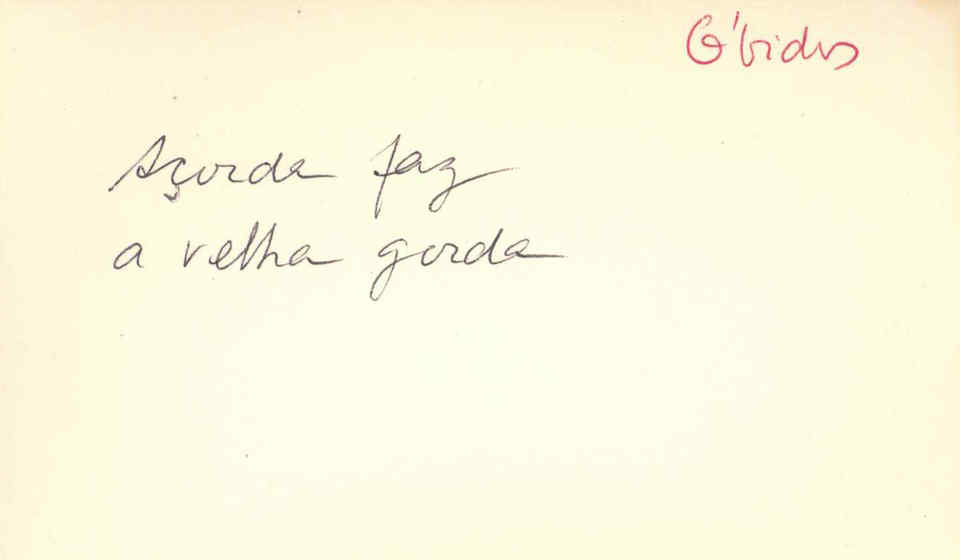 Óbidos
Açorda faz
a velha gorda